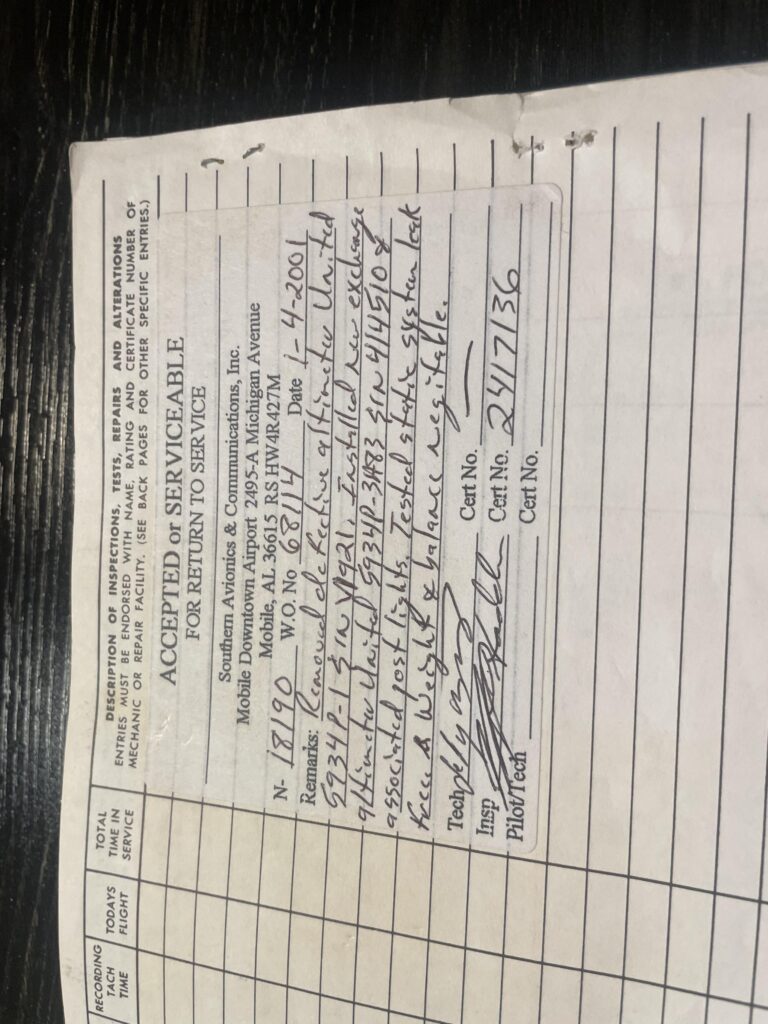 RECORDING TACH TIME
TODAYS FLIGHT
TOTAL TIME IN SERVICE
DESCRIPTION OF INSPECTIONS, TESTS, REPAIRS AND ALTERATIONS
ENTRIES MUST BE ENDORSED WITH NAME, RATING AND CERTIFICATE NUMBER OF
MECHANIC OR REPAIR FACILITY. (SEE BACK PAGES FOR OTHER SPECIFIC ENTRIES.)
ACCEPTED or SERVICEABLE
FOR RETURN TO SERVICE
Southern Avionics & Communications, Inc.
Mobile Downtown Airport 2495-A Michigan Avenue
Mobile, AL 36615 RS HW4R427M
N- 18190 W.O. No 68114 Date 1-4-2001
Remarks: Removed defective altimeter United
5934P-1 S/N V1921. Installed new exchange
altimeter United 5934P-3A83 S/N 414510 &
associated post lights. Tested static system leak
free & Weight & balance negitable.
Tech Cert No. —
Insp Cert No. 2417136
Pilot/Tech Cert No.